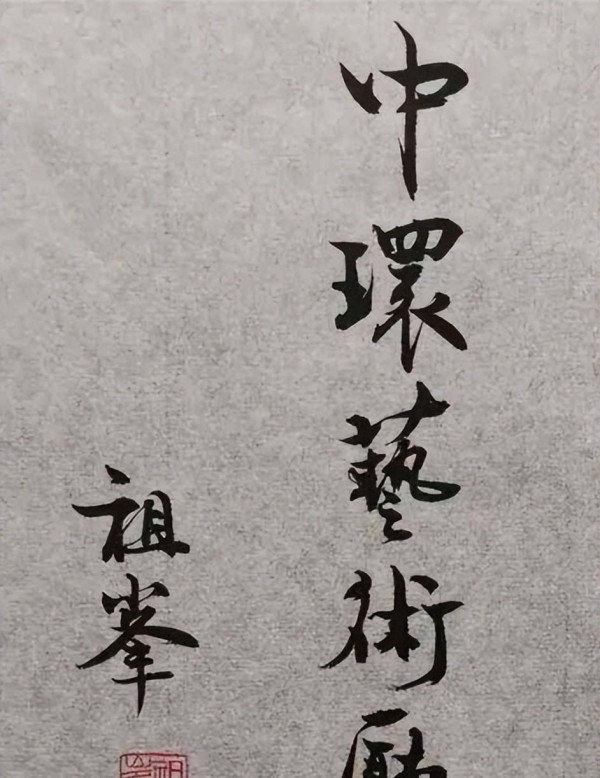 中環藝術
祖峯